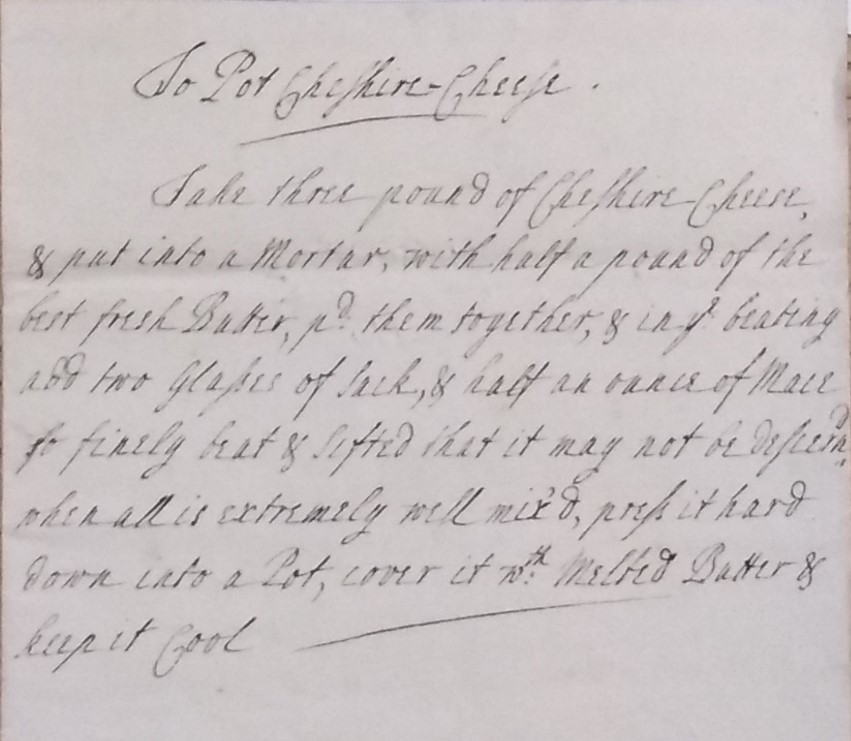 To Pot Cheshire-Cheese.
Take three pound of Cheshire-Cheese,
& put into a Mortar, with half a pound of the
best fresh Butter, pd. them together, & in ye. beating
add two Glasses of Sack, & half an ounce of Mace
so finely beat & sifted that it may not be descern'd,
when all is extremely well mix'd, press it hard
down into a Pot, cover it wth. Melted Butter &
keep it Cool